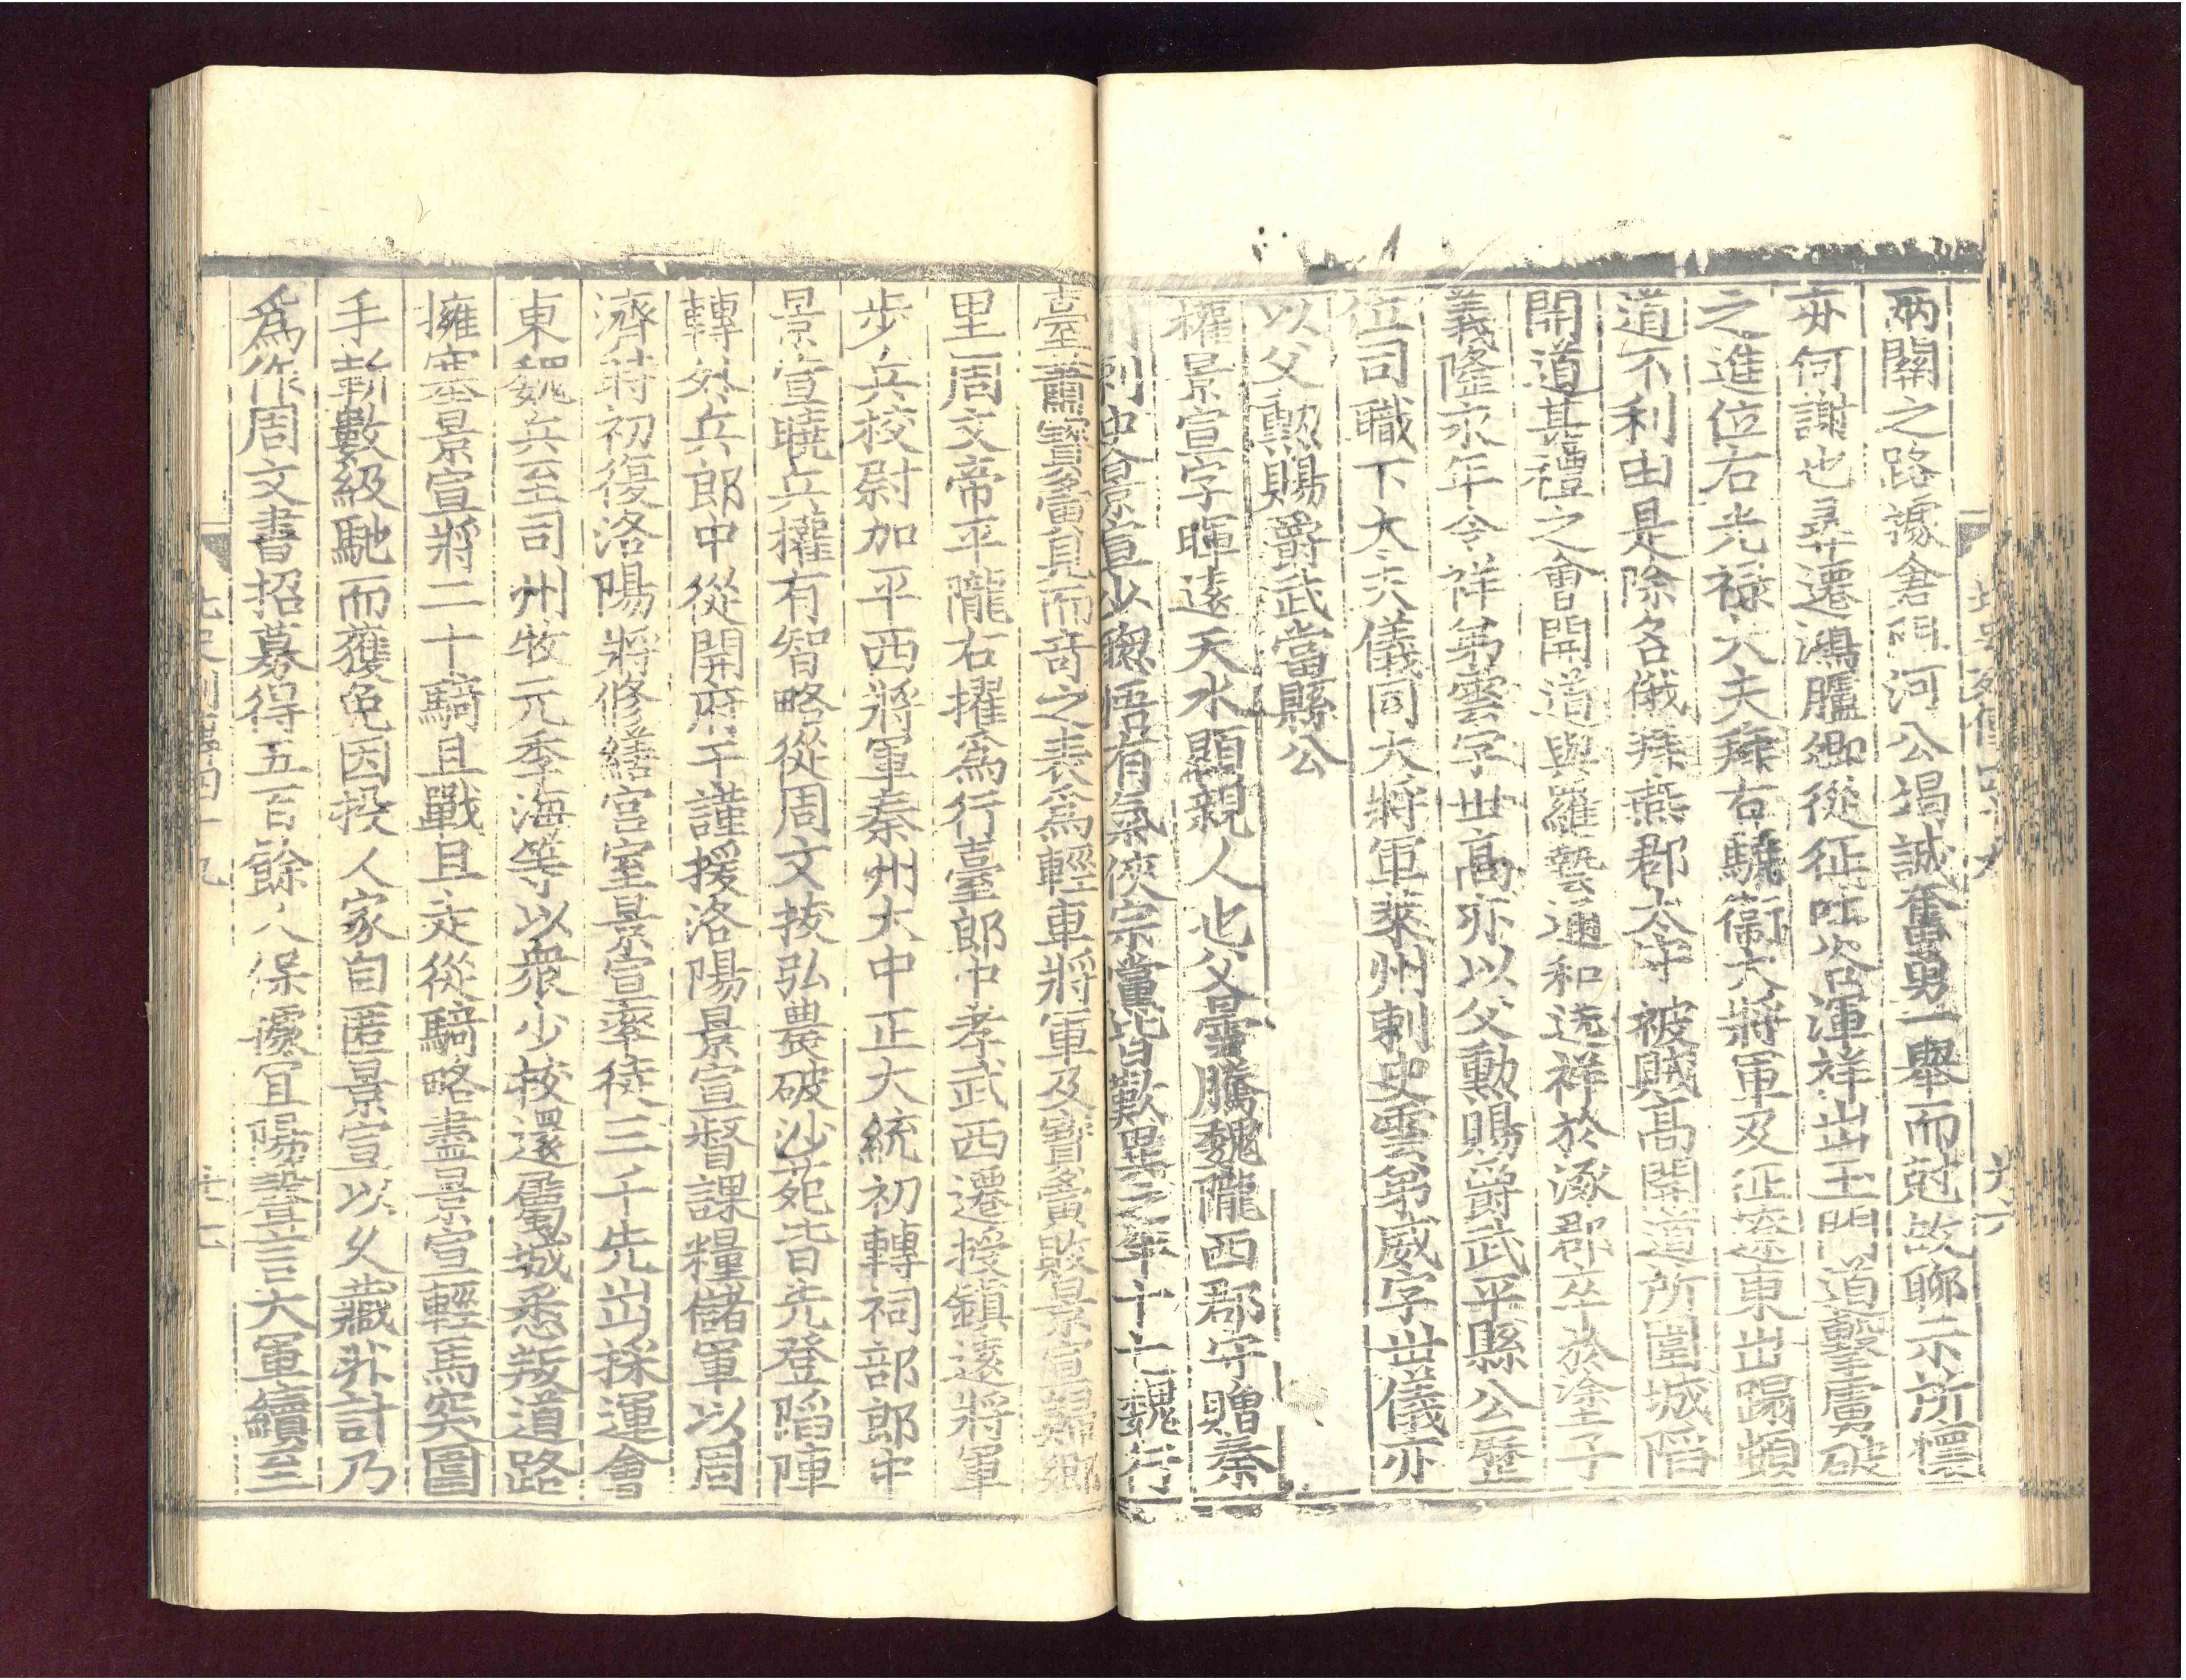 兩關之路據倉門河公竭誠奮勇一舉而尅故聊示所懷
亦何謝也尋遷鴻臚卿從征吐谷渾祥出玉門道擊虜破
之進位右光禄大夫拜右驍衞大將軍及征遼東出蹋頓
道不利由是除名俄拜燕郡太守被賊高開道所圍城陷
開道甚禮之會開道與羅藝通和送祥於涿郡卒於塗子
義隆永年令祥弟雲字世高亦以父勳賜爵武平縣公歷
位司職下大夫儀同大將軍萊州刺史雲弟威字世儀亦
以父勲賜爵武當縣公
權景宣字暉遠天水顯親人也父曇騰魏隴西郡守贈秦
刺史景宣少聦悟有氣俠宗黨皆歎異之年十七魏行
臺蕭寳夤見而竒之表爲輕車將軍及寳夤敗景宣歸郷
里周文帝平隴右擢爲行臺郎中孝武西遷授鎮遠將軍
步兵校尉加平西將軍秦州大中正大統初轉祠部郎中
景宣曉兵權有智略從周文拔弘農破沙苑皆先登陷陣
轉外兵郎中從開府于謹援洛陽景宣督課糧儲軍以周
濟時初復洛陽將修繕宫室景宣率徒三千先出採運會
東魏兵至司州牧元季海等以衆少拔還屬城悉叛道路
擁塞景宣將二十騎且戰且走從騎略盡景宣輕馬突圍
手斬數級馳而獲免因投人家自匿景宣以乆藏非計乃
爲作周文書招募得五百餘人保據宜陽聲言大軍續至
北史列傳四十九